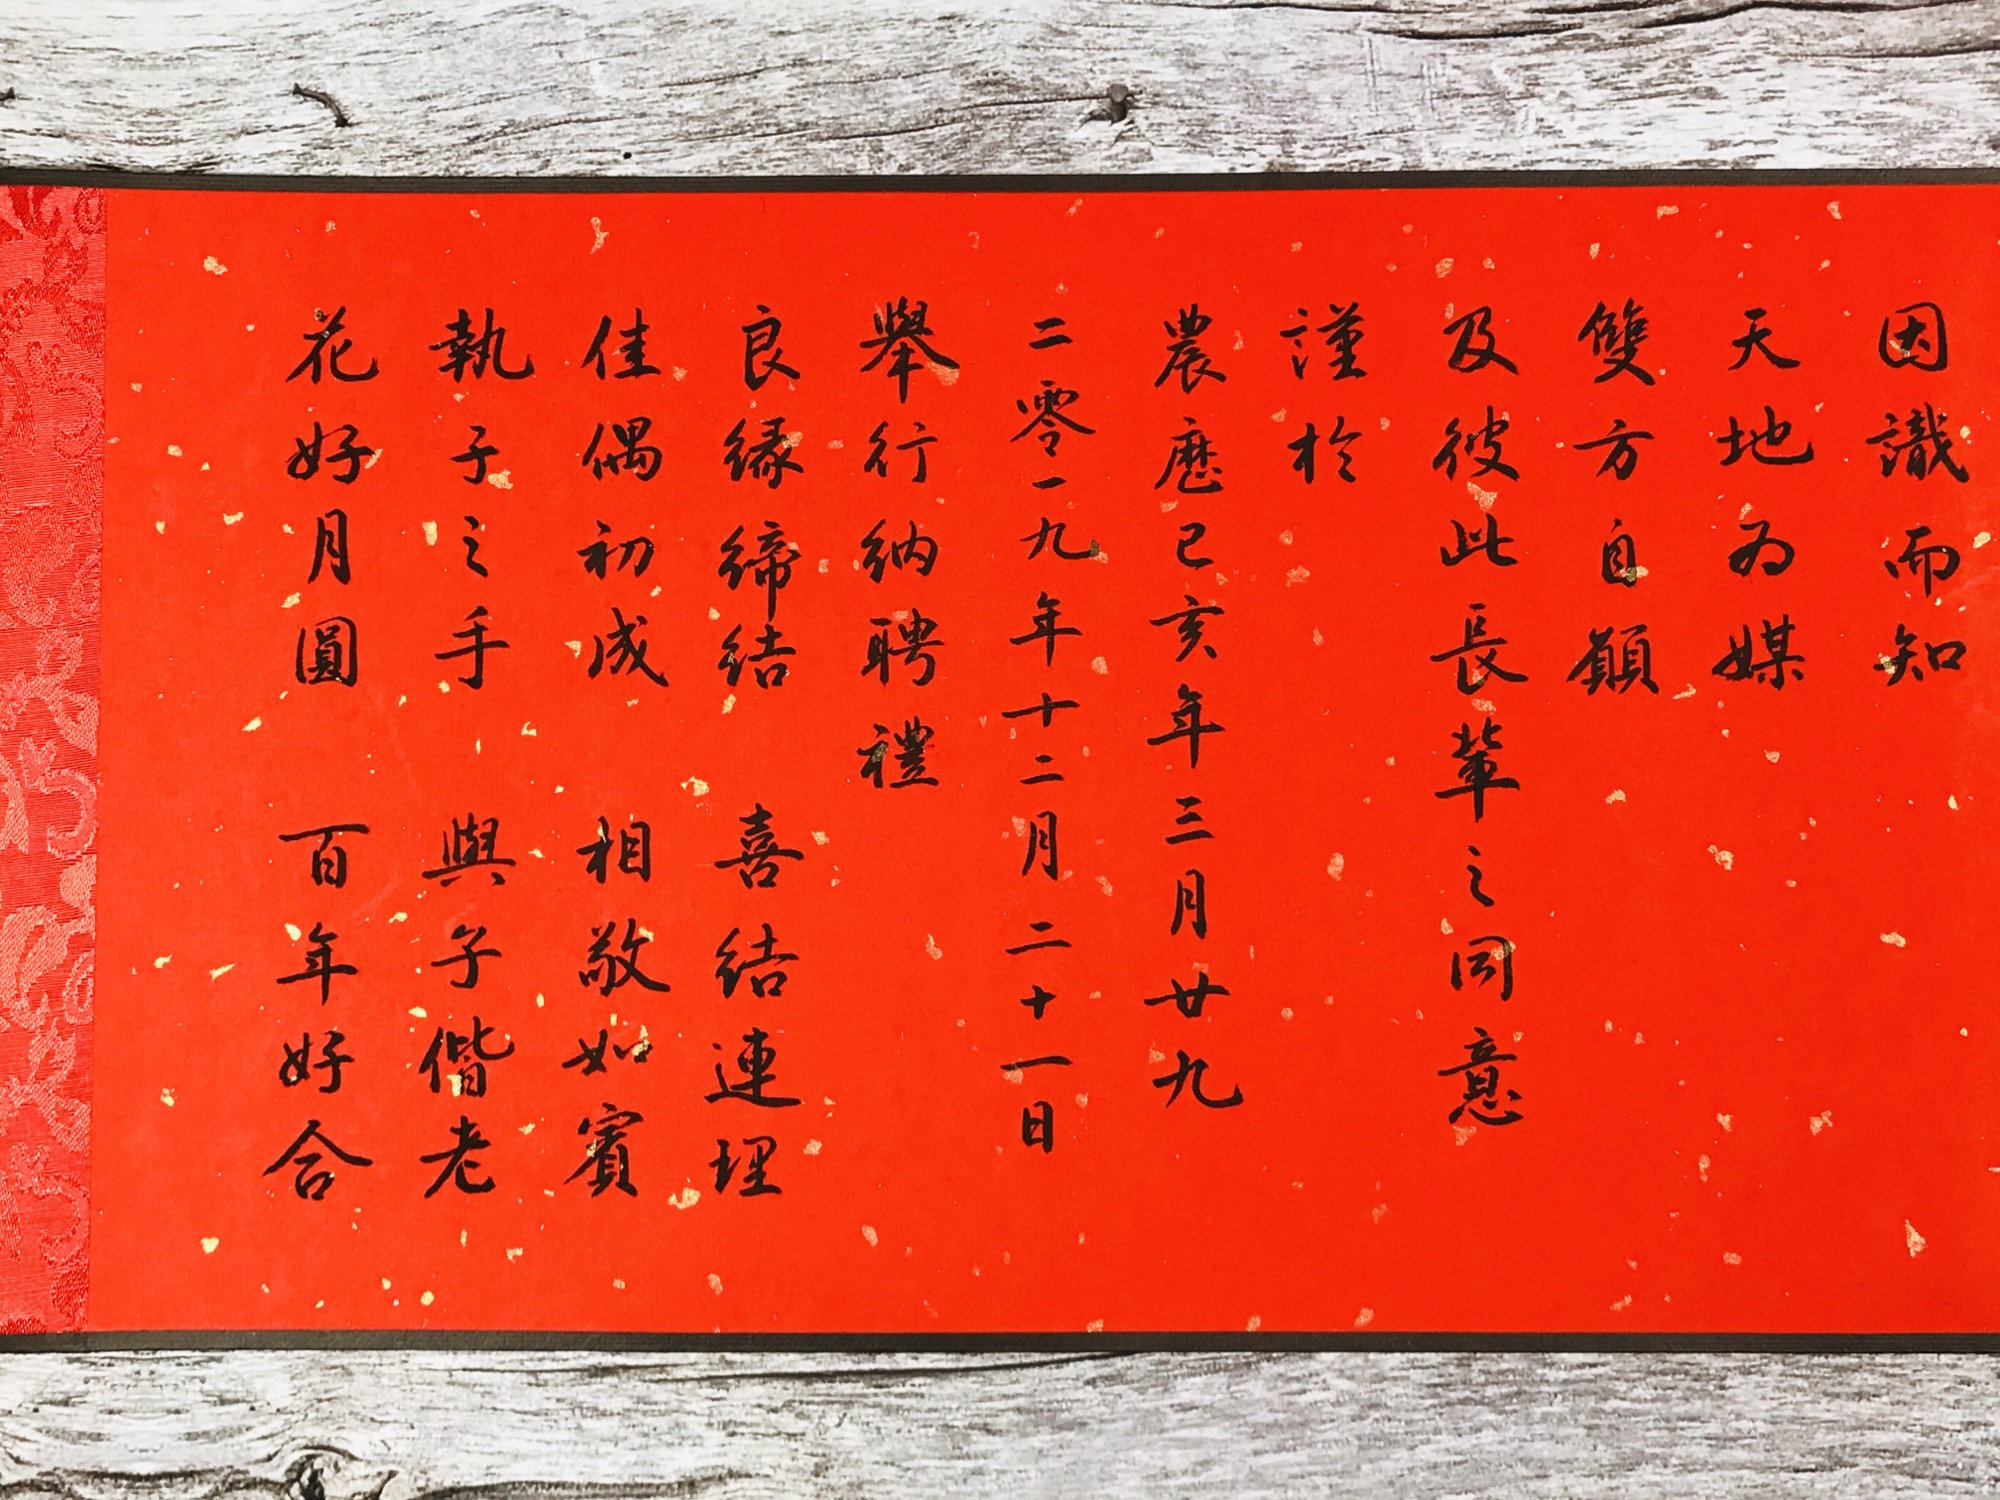 因識而知
天地為媒
雙方自願
及彼此長輩之同意
謹於
農曆己亥年三月廿九
二零一九年十二月二十一日
舉行納聘禮
良緣締結 喜結連理
佳偶初成 相敬如賓
執子之手 與子偕老
花好月圓 百年好合